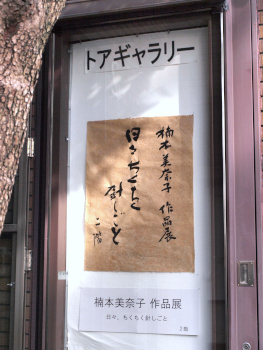 トアギャラリー
楠本美奈子 作品展
日々ちくちく
針しごと
二階
楠本美奈子 作品展
日々、ちくちく針しごと
2階